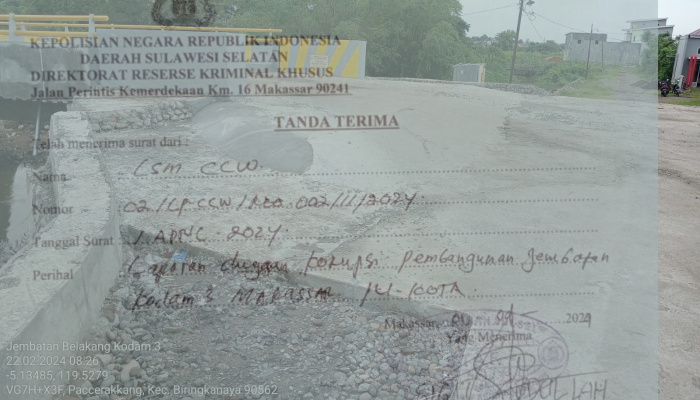 KEPOLISIAN NEGARA REPUBLIK INDONESIA
DAERAH SULAWESI SELATAN
DIREKTORAT RESERSE KRIMINAL KHUSUS
Jalan Perintis Kemerdekaan Km. 16 Makassar 90241
TANDA TERIMA
Telah menerima surat dari :
Nama : LSM CCW.
Nomor : 02/LP.CCW/
Tanggal Surat : 1 APRIL 2024.
Perihal : Laporan dugaan korupsi pembangunan jembatan
Kodam 3 MAKASSAR
Makassar, 2024
Yang Menerima
Jembatan Belakang Kodam 3
22.02.2024 08:26
-5.13485, 119.5279
VG7H+X3F, Paccerakkang, Kec. Biringkanaya 90562